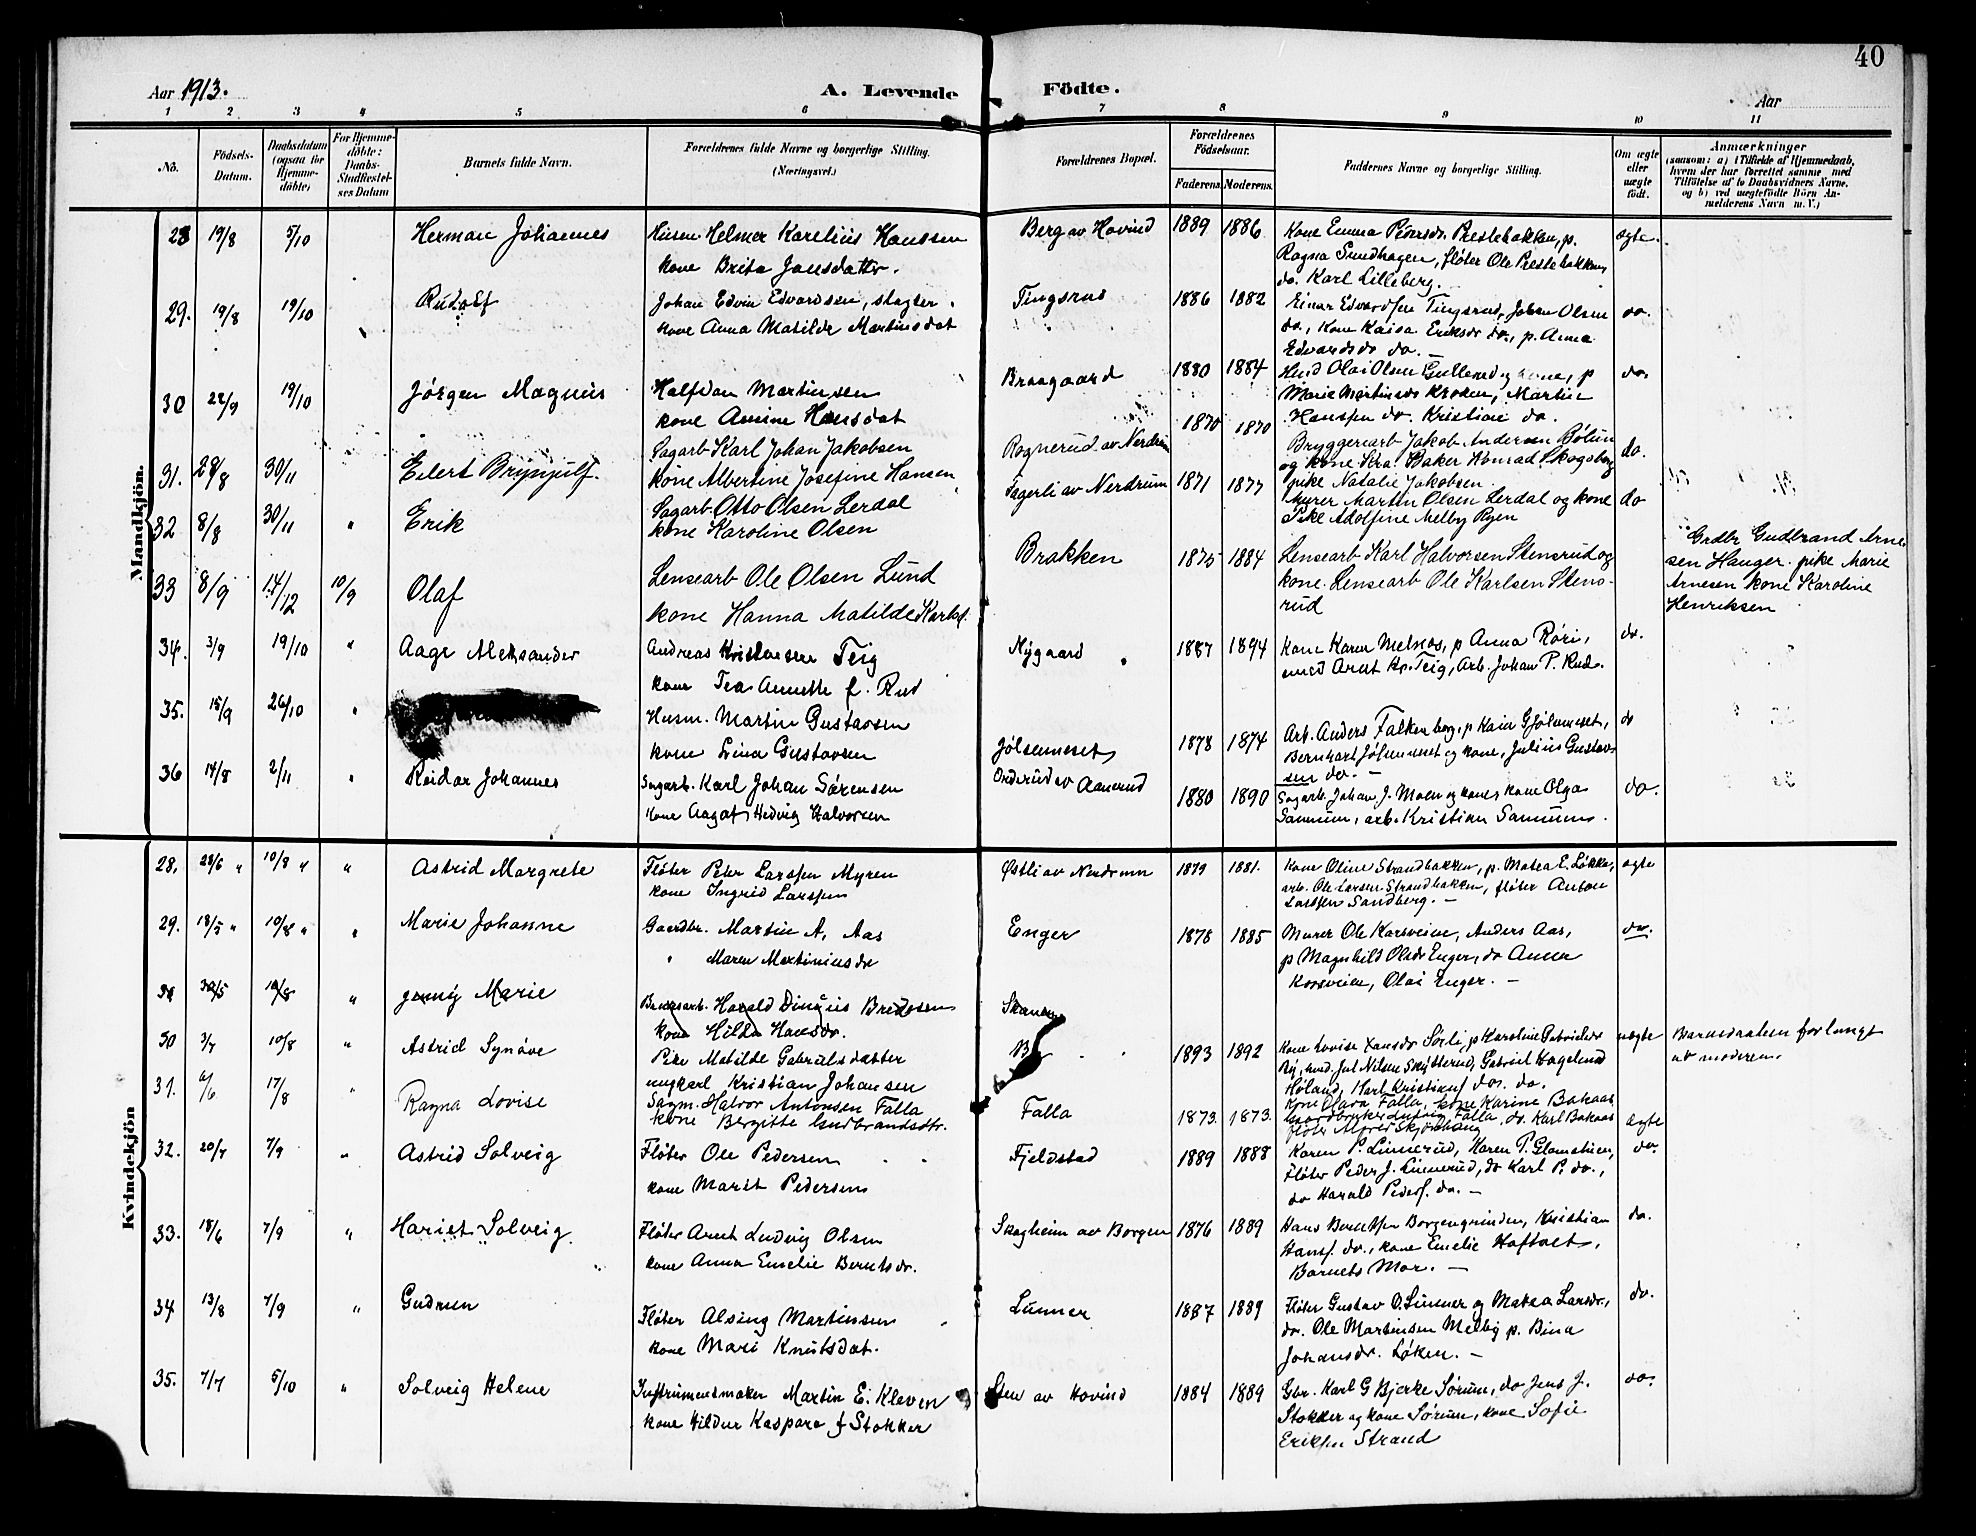 40
Aar 1913.
A. Levende Födte.
Aar
1 2 3 4 5 6 7 8 9 10 11
No.
Födsels-
Datum.
Daabsdatum
(ogsaa for
Hjemme-
döbte)
For Hjemme-
döbte:
Daabs-
Stadfæstel-
ses Datum
Barnets fulde Navn.
Forældrenes fulde Navne og borgerlige Stilling.
(Næringsvei.)
Forældrenes Bopæl.
Forældrenes
Födselsaar.
Faderens.
Moderens.
Faddernes Navne og borgerlige Stilling.
Om ægte
eller
uægte
födt.
Anmærkninger
(saasom: a) i Tilfælde af Hjemmedaab,
hvem der har forrettet samme med
Tilföielse af to Daabsvidners Navne.
og b) ved uægtefödte Börn An-
melderens Navn m. V.)
Mandkjön.
28 19/8 5/10 Herman Johannes
Husm. Helmer Karelius Hanssen
kone Brita Jansdattr.
Berg av Hovind 1889 1886
Kone Emma Pedersdr. Prestebakken, p.
Ragna Sundhagen, fløter Ole Prestebakken
do. Karl Lilleberg.
ægte.
29. 19/8 19/10 Rudolf
Johan Edvin Edvardsen, slagter.
kone Anna Matilde Martinsdat
Tingsrud 1886 1882
Einar Edvardsen Tingsrud, Johan Olsen
do., Kone Kaisa Eriksdr do., p. Anna
Edvardsdr do. —
do.
30 22/9 19/10 Jørgen Magnus
Halfdan Martinsen
kone Amine Hansdat
Braagaard 1880 1884
Olai Olsen Gullerud og kone, p
Marie Martinsdr Kroken, Martin
Hanssen do. Kristian do.
do.
31. 28/8 30/11 Eilert Brynjulf.
Sagarb Karl Johan Jakobsen
kone Albertine Josefine Hansen
Rognerud av Nerdrum 1870 1870
Bryggeriarb Jakob Andersen Bølun
og kone Kra. Baker Konrad Skogsberg
pike Natalie Jakobsen
do.
32 8/8 30/11 " Erik
Sagarb. Otto Olsen Lerdal
kone Karoline Olsen
Fagerli av Nerdrum 1871 1877
Murer Martin Olsen Lerdal og kone
Pike Adolfine Melby Ryen
do
33 8/9 14/12 10/9 Olaf
Lensearb Ole Olsen Lund
kone Hanna Matilde Karlsd.
Brakken 1875 1884
Lensearb Karl Halvorsen Stensrud og
kone. Lensearb Ole Karlsen Stens-
rud
Grdbr Gudbrand Arne
sen Hauger. pike Marie
Arnesen kone Karoline
Henriksen
34. 3/9 19/10 " Aage Aleksander
Andreas Kristiansen Teig
kone Tea Annette f. Rud
Nygaard 1887 1894
Kone Karen Melnes, p Anna Röri,
Arnt Kr. Teig, Arb. Johan P. Rud.
do.
35. 15/9 26/10 "
Husm. Martin Gustavsen
kone Lina Gustavsen
Jølsenneset 1878 1874
Arb. Anders Falkenberg, p Kaia Gjölsneset,
Bernhart Jølsenneset og kone, Julius Gustav
sen do. —
do
36 14/8 2/11 " Reidar Johannes
Sagarb. Karl Johan Sörensen
Kone Aagot Hedvig Halvorsen
Onderud av Aanerud 1880 1890
Sagarb. Johan J. Moen og kone, kone Olga
Sannum, arb. Kristian Sannum.
do.
Kvindekjön
28. 28/6 " 10/8 " " Astrid Margrete
Fløter Peter Larssen Myren
kone Ingrid Larssen
Østli av Nerdrum 1879 1881.
Kone Oline Strandbakken, p. Matea E. Løkken,
arb. Ole Larsen Strandbakken, fløter Anton
Larssen Sandberg. —
ægte
29. 18/5 " 10/8 " " Marie Johanne
Gaardbr. Martin A. Aas
" Maren Martiniusdr
Enger 1878 1885
Murer Ole Korsveien, Anders Aas,
p Magnhild Olsdr Enger, do Anna
Korsveien, Olai Enger. —
do.
30/5 10/8 " Jenny Marie
Harald Dingus Bredesen
kone Hilda Hansdr.
30 3/7 10/8 " Astrid Synöve
Pike Matilde Gabrielsdatter
ungkarl Kristian Johansen
1893 1892
Kone Lovise Hansdr Sörli, p Karoline Gabrielsdr
By, Jul Nilsen Skytterud, Gabriel Hagelund
Høland, Karl Kristians. do.
uægte
Barnedaaben forlangt
av moderen.
31. 6/6 17/8 " Ragna Lovise
Sagm. Halvor Antonsen Falla
kone Bergitte Gudbrandsdtr.
Falla 1873. 1873.
Kone Olava Falla, kone Karine Bakaas
Gaardbruker Ludvig Falla, do. Karl Bakaas
fløter Alfred Skjønhaug
ægte
32. 20/7 7/9 " Astrid Solveig
Fløter Ole Pedersen
kone Marit Pedersen
Fjeldstad 1889 1888
Karen P. Linnerud, Karen P. Glomstuen,
Fløter Peder J. Linnerud, do Karl P. do.,
do Harald Peders. do. —
do.
33. 18/6 7/9 " Hariet Solveig
Fløter Arnt Ludvig Olsen
kone Anna Emelie Berntsdr.
Skogheim av Borgen 1876 1889
Hans Berntsen Borgengrinden, Kristian
Hans. do., kone Emelie Haftoet,
Barnets Mor. —
do.
34 13/8 7/9 " Gudrun
Fløter Alsing Martinsen
kone Mari Knutsdat.
Lunner 1887 1889
Fløter Gustav O. Linner og Matea Larsdr.,
do. Ole Martinsen Melby p. Bina
Johansdr. Løken. —
do.
35. 7/7 5/10 " Solveig Helene
Instrumensmaker Martin E. Kleven
kone Hildur Kaspara f Stokker
Sten av Hovind 1884 1889
Gbr. Karl G Bjerke Sørum, do Jens J.
Stokker og kone Sørum, kone Sofie
Eriksen Strand
do.